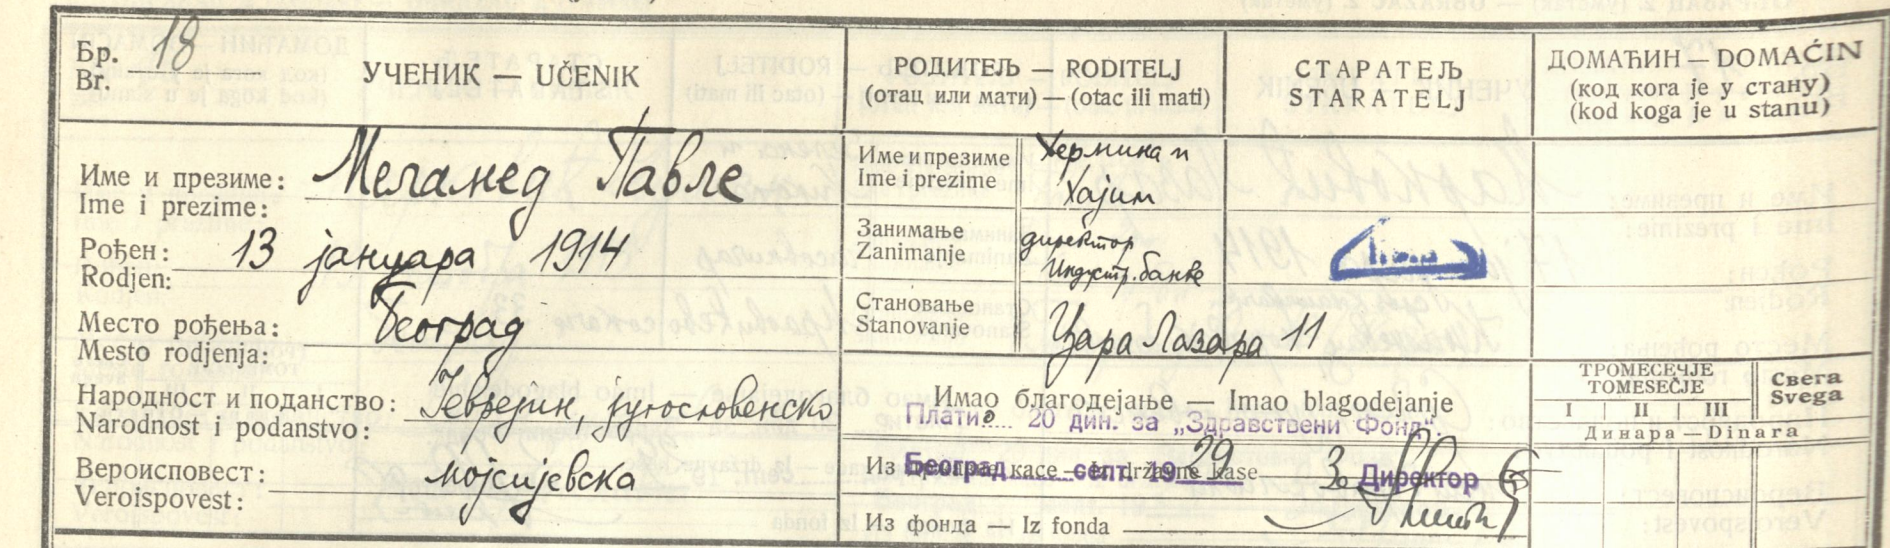 Бр. 18
Br.
УЧЕНИК — UČENIK
РОДИТЕЉ — RODITELJ
(отац или мати) — (otac ili mati)
СТАРАТЕЉ
STARATELJ
ДОМАЋИН — DOMAĆIN
(код кога је у стану)
(kod koga je u stanu)
Име и презиме: Меламед Павле
Ime i prezime:
Рођен: 13 јануара 1914
Rodjen:
Место рођења: Београд
Mesto rodjenja:
Народност и поданство: Јеврејин, југословенско
Narodnost i podanstvo:
Вероисповест: мојсијевска
Veroispovest:
Име и презиме
Ime i prezime
Хермина и
Хајим
Занимање
Zanimanje
директор
Индустр. банке
Становање
Stanovanje
Цара Лазара 11
Имао благодејање — Imao blagodejanje
Платио 20 дин. за „Здравствени Фонд“
Из државне касе — Iz državne kase
Београд септ. 1929
З. Директор
Из фонда — Iz fonda
ТРОМЕСЕЧЈЕ
TOMESEČJE
I II III
Свега
Svega
Динара — Dinara